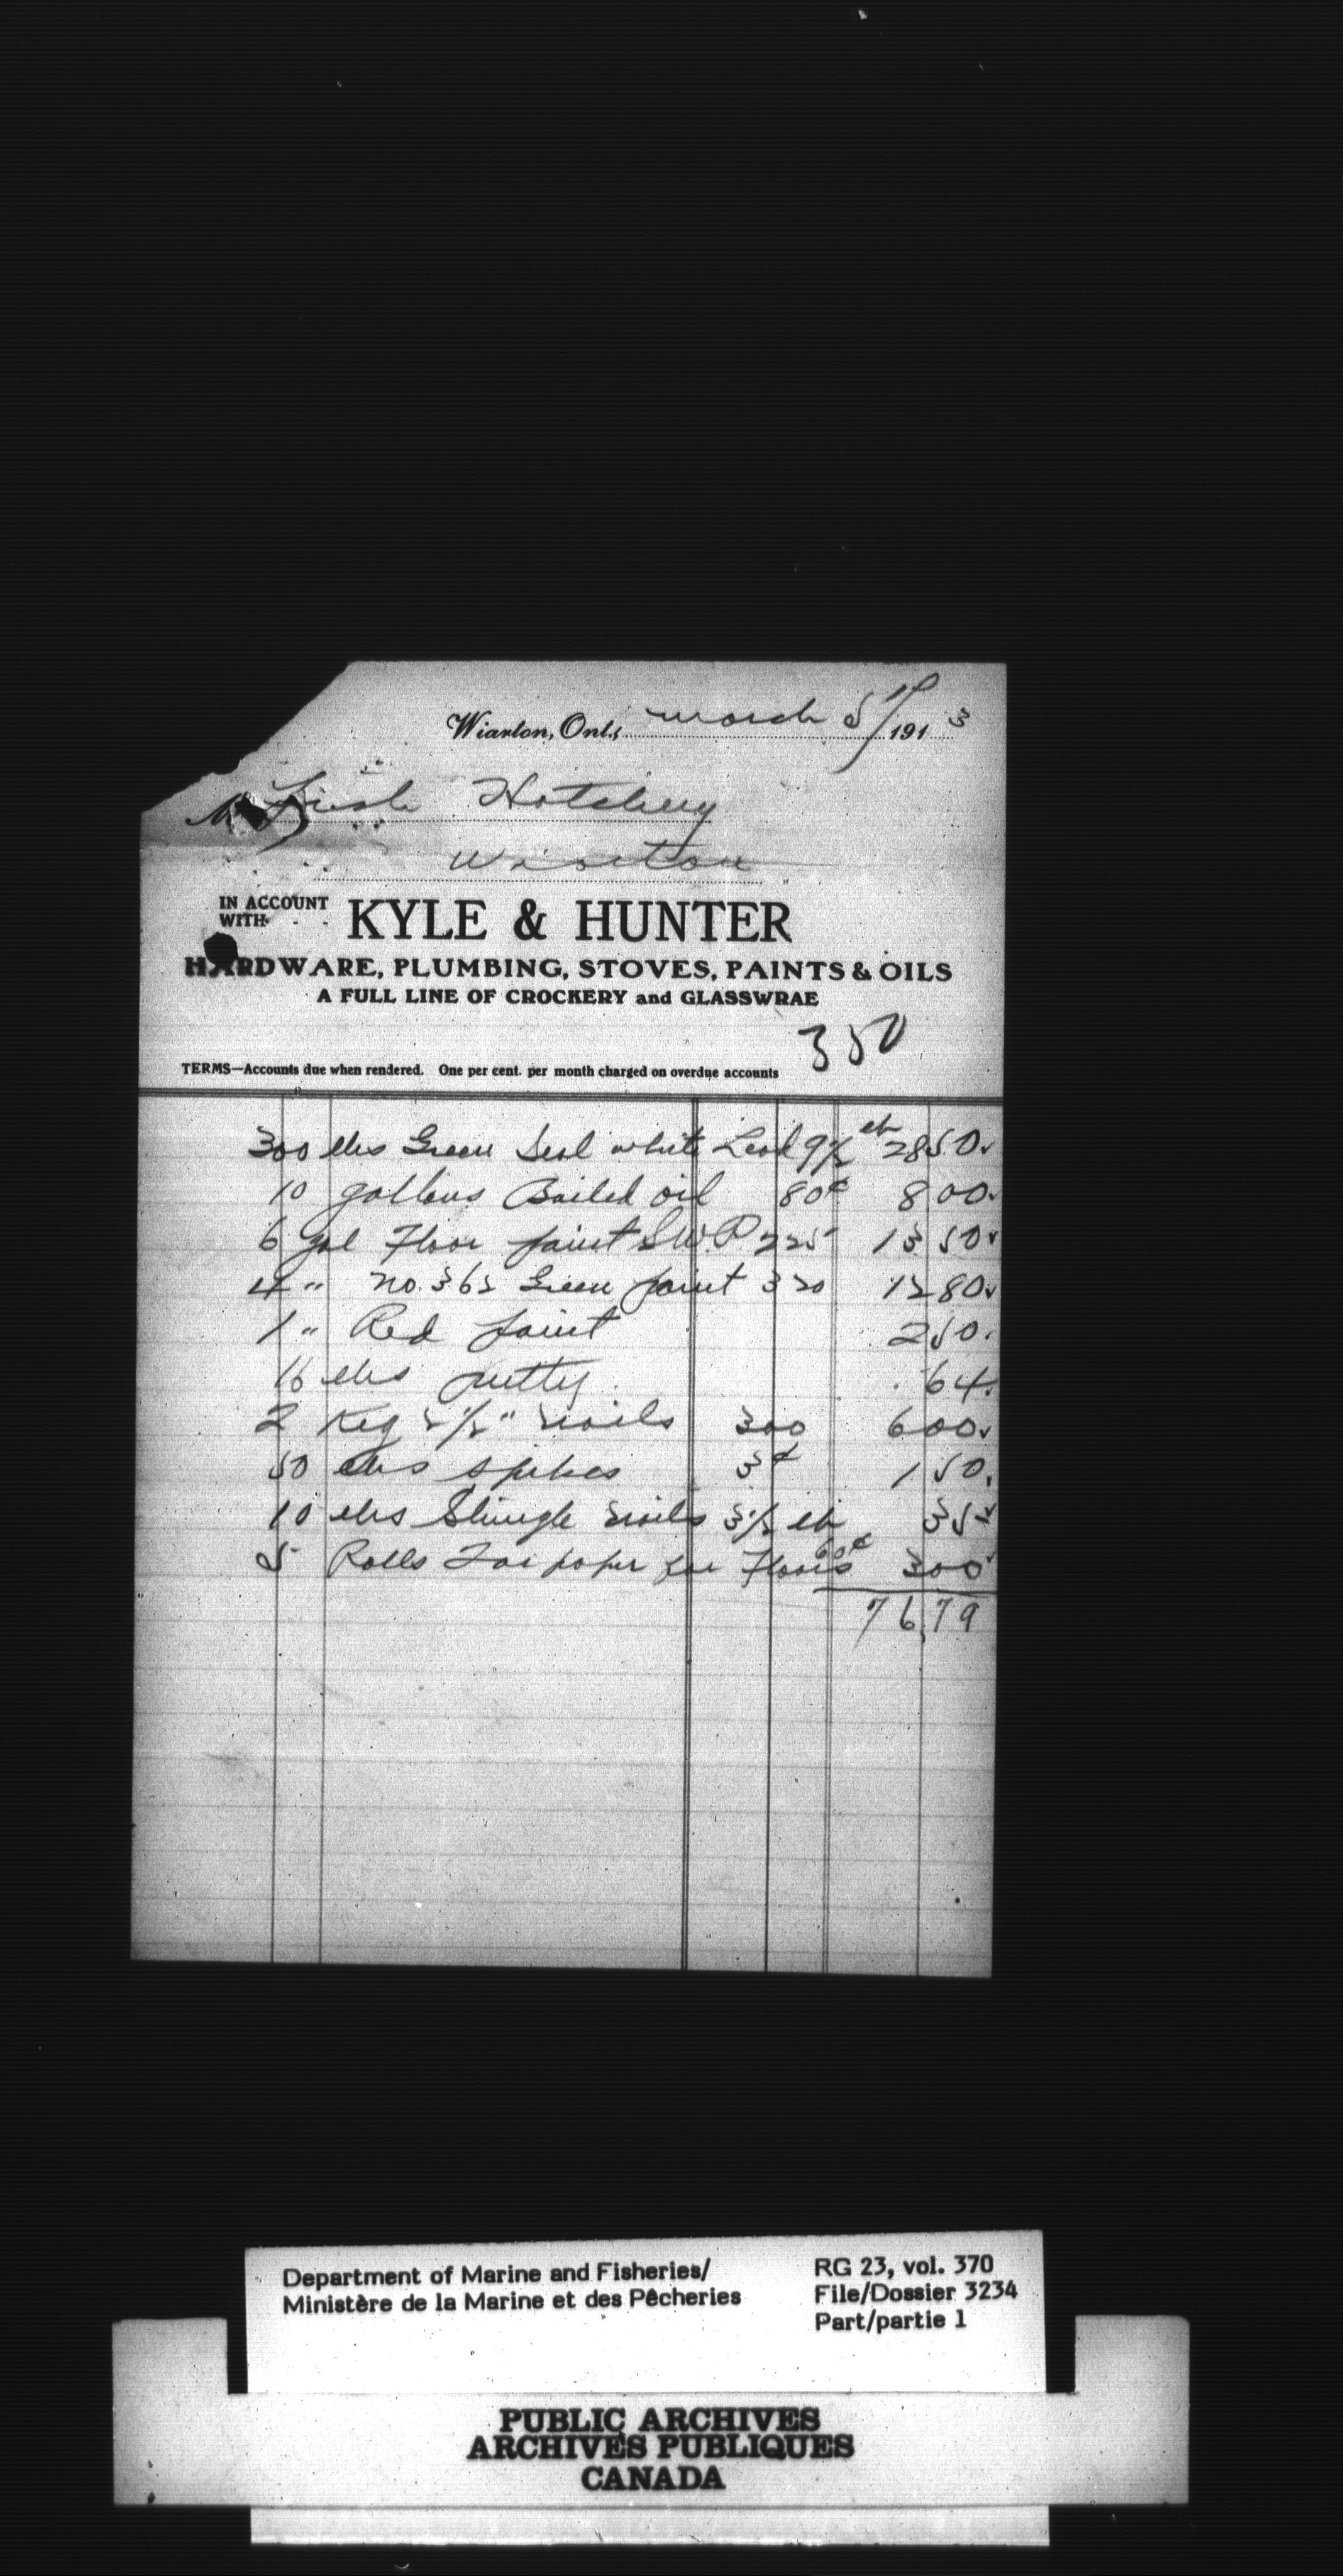 Wiarton, Ont., March 5th 1913
M Fish Hatchery
Wiarton
IN ACCOUNT
WITH - - KYLE & HUNTER
HARDWARE, PLUMBING, STOVES, PAINTS & OILS
A FULL LINE OF CROCKERY and GLASSWRAE
350
TERMS—Accounts due when rendered. One per cent. per month charged on overdue accounts
300 lbs Green Seal white Lead 9½ lb 28 50
10 gallons Boiled oil 80¢ 8 00
6 gal Floor paint S.W.P 225 13 50
4 " no. 362 Green paint 320 12 80
1 " Red paint 2 50
16 lbs putty 64
2 Keg 2½" nails 300 6 00
50 lbs spikes 3¢ 1 50
10 lbs Shingle nails 3½ lb 35
5 Rolls Tar paper for Floors 60¢ 3 00
76,79
Department of Marine and Fisheries/
Ministère de la Marine et des Pêcheries
RG 23, vol. 370
File/Dossier 3234
Part/partie 1
PUBLIC ARCHIVES
ARCHIVES PUBLIQUES
CANADA